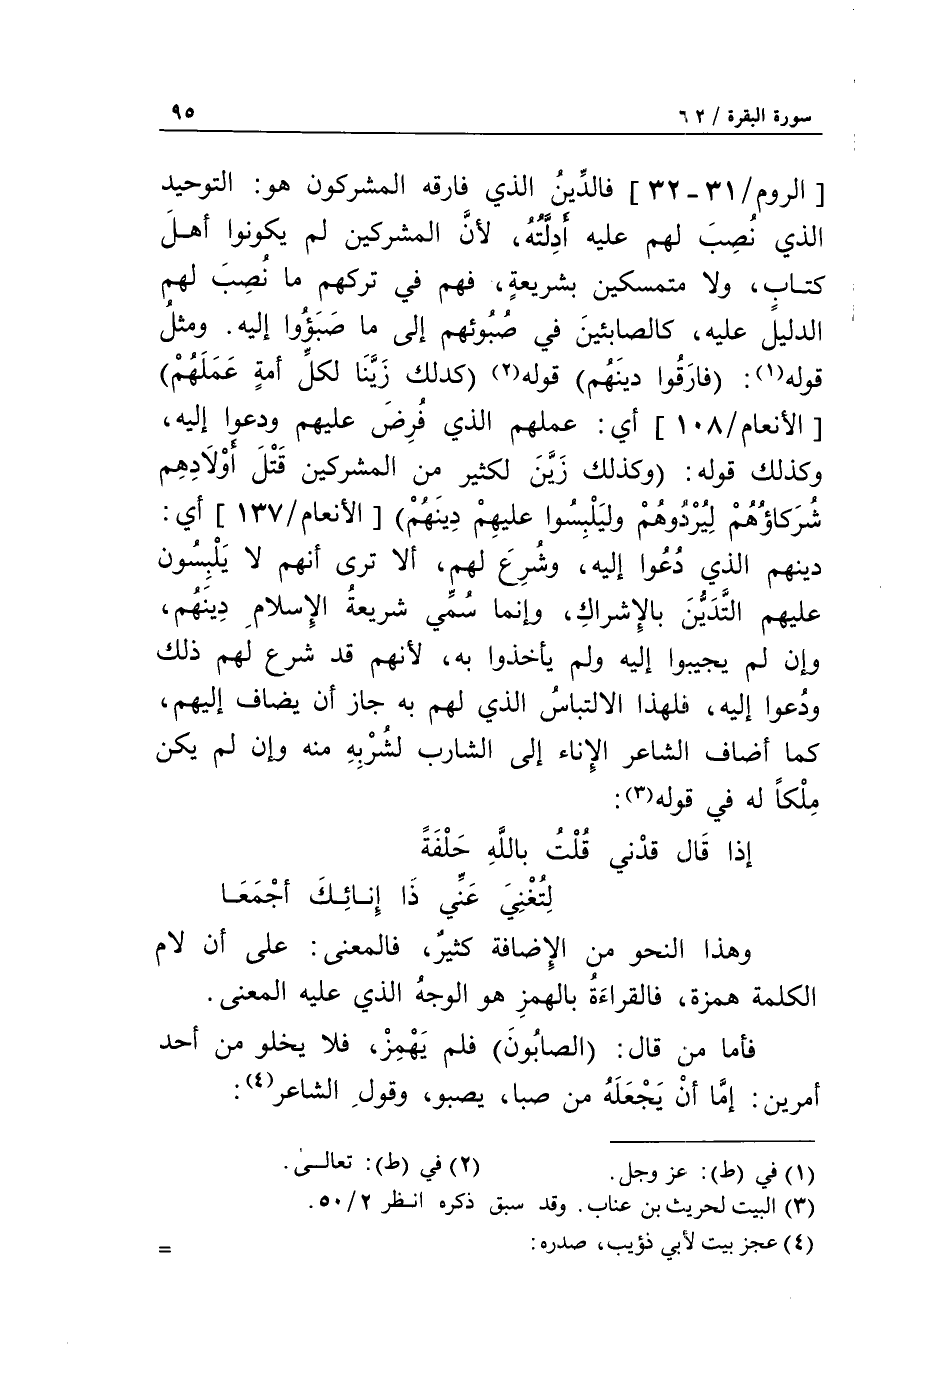 سورة البقرة / ٦٢ ٩٥
[ الروم/٣١ - ٣٢ ] فالدِّينُ الذي فارقه المشركون هو: التوحيد
الذي نُصِبَ لهم عليه أَدِلَّتُهُ، لأنَّ المشركين لم يكونوا أهـلَ
كتـابٍ، ولا متمسكين بشريعةٍ، فهم في تركهم ما نُصِبَ لهم
الدليلُ عليه، كالصابئينَ في صُبُوئهم إلى ما صَبَؤُوا إليه. ومثلُ
قوله(١): (فارَقُوا دينَهُم) قوله(٢) (كذلك زَيَّنَا لكلِّ أمةٍ عَمَلَهُمْ)
[ الأنعام/١٠٨ ] أي: عملهم الذي فُرِضَ عليهم ودعوا إليه،
وكذلك قوله: (وكذلك زَيَّنَ لكثير من المشركين قَتْلَ أَوْلَادِهِم
شُرَكاؤُهُمْ لِيُرْدُوهُمْ وليَلْبِسُوا عليهِمْ دِينَهُمْ) [ الأنعام/١٣٧ ] أي:
دينهم الذي دُعُوا إليه، وشُرِعَ لهم، ألا ترى أنهم لا يَلْبِسُون
عليهم التَّدَيُّنَ بالإِشراكِ، وإنما سُمِّي شريعةُ الإِسلامِ دِينَهُم،
وإن لم يجيبوا إليه ولم يأخذوا به، لأنهم قد شرع لهم ذلك
ودُعوا إليه، فلهذا الالتباسُ الذي لهم به جاز أن يضاف إليهم،
كما أضاف الشاعر الإِناء إلى الشارب لشُرْبِهِ منه وإن لم يكن
مِلْكاً له في قوله(٣):
إذا قَال قدْني قُلْتُ باللَّهِ حَلْفَةً
لِتُغْنِيَ عَنِّي ذَا إنـائِـكَ أجْمَعَـا
وهذا النحو من الإِضافة كثيرٌ، فالمعنى: على أن لام
الكلمة همزة، فالقراءَةُ بالهمزِ هو الوجهُ الذي عليه المعنى.
فأما من قال: (الصابُونَ) فلم يَهْمِزْ، فلا يخلو من أحد
أمرين: إمَّا أنْ يَجْعَلَهُ من صبا، يصبو، وقولِ الشاعر(٤):
(١) في (ط): عز وجل. (٢) في (ط): تعالـى.
(٣) البيت لحريث بن عناب. وقد سبق ذكره انـظر ٥٠/٢.
(٤) عجز بيت لأبي ذؤيب، صدره: =